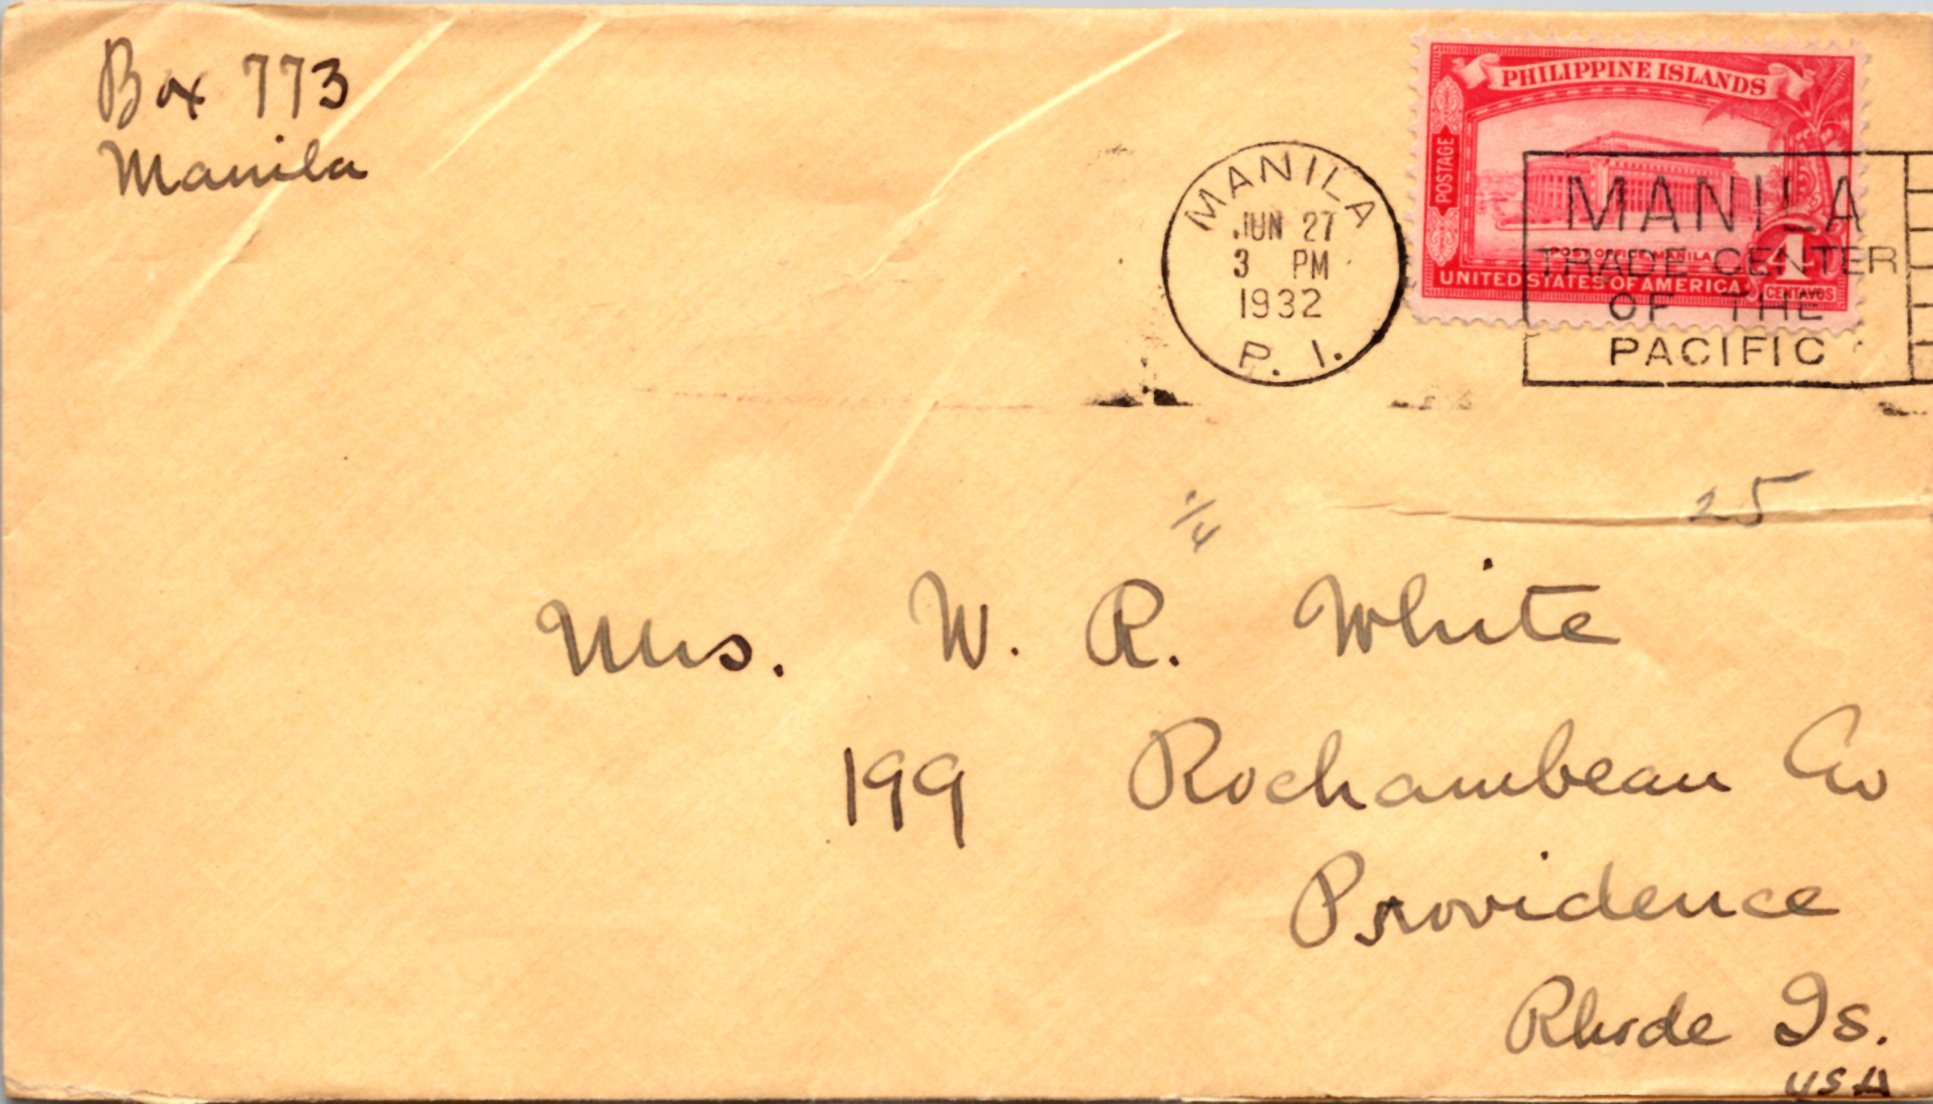 Box 773
Manila
PHILIPPINE ISLANDS
POSTAGE
POST OFFICE, MANILA
4
CENTAVOS
UNITED STATES OF AMERICA
MANILA
JUN 27
3 PM
1932
P. I.
MANILA
TRADE CENTER
OF THE
PACIFIC
25
Mrs. W. R. White
199 Rochambeau Av
Providence
Rhode Is.
USA